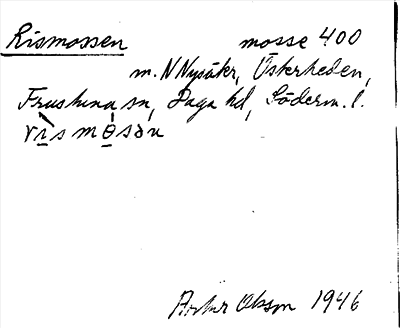 Rismossen mosse 400
m. N Nysäkr, Österheden,
Frustuna sn, Daga hd, Söderm. l.
rìsmósən
Artur Olsson 1946